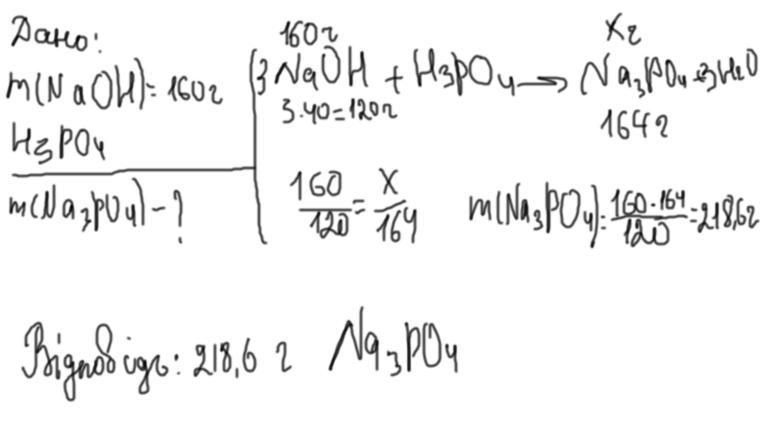 Дано:
m(NaOH)=160г
H3PO4
m(Na3PO4)-?
160г
Xг
3NaOH + H3PO4 → Na3PO4 + 3H2O
3·40=120г
164г
160/120 = X/164
m(Na3PO4)= 160·164/120 =218,6г
Відповідь: 218,6 г Na3PO4